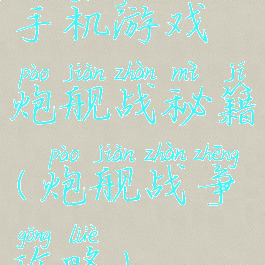 手机游戏
pào jiàn zhàn mì jí
炮舰战秘籍
pào jiàn zhàn zhēng
(炮舰战争
gōng lüè
攻略)